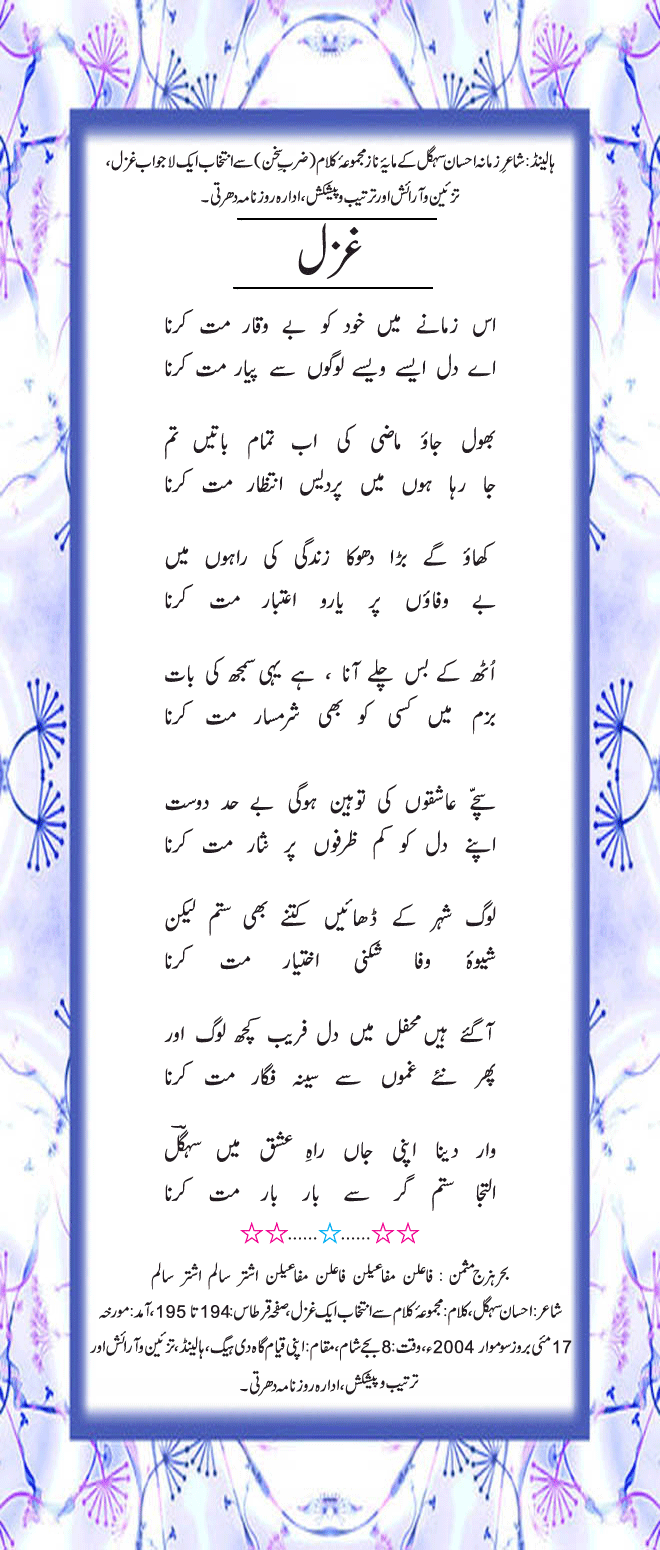 ہالینڈ: شاعرِ زمانہ احسان سہگل کے مایۂ ناز مجموعۂ کلام (ضربِ سخن) سے انتخاب ایک لاجواب غزل،
تزئین و آرائش اور ترتیب و پیشکش، ادارہ روزنامہ دھرتی۔
غزل
اس زمانے میں خود کو بے وقار مت کرنا
اے دل ایسے ویسے لوگوں سے پیار مت کرنا
بھول جاؤ ماضی کی اب تمام باتیں تم
جا رہا ہوں میں پردیس انتظار مت کرنا
کھاؤ گے بڑا دھوکا زندگی کی راہوں میں
بے وفاؤں پر یارو اعتبار مت کرنا
اُٹھ کے بس چلے آنا ، ہے یہی سمجھ کی بات
بزم میں کسی کو بھی شرمسار مت کرنا
سچّے عاشقوں کی توہین ہوگی بے حد دوست
اپنے دل کو کم ظرفوں پر نثار مت کرنا
لوگ شہر کے ڈھائیں کتنے بھی ستم لیکن
شیوۂ وفا شکنی اختیار مت کرنا
آگئے ہیں محفل میں دل فریب کچھ لوگ اور
پھر نئے غموں سے سینہ فگار مت کرنا
وار دینا اپنی جاں راہِ عشق میں سہگلؔ
التجا ستم گر سے بار بار مت کرنا
بحر ہزج مثمن : فاعلن مفاعیلن فاعلن مفاعیلن اشتر سالم اشتر سالم
شاعر: احسان سہگل، کلام: مجموعۂ کلام سے انتخاب ایک غزل، صفحہ قرطاس: 194 تا 195، آمد: مورخہ
17 مئی بروز سوموار 2004ء، وقت: 8 بجے شام، مقام: اپنی قیام گاہ دی ہیگ، ہالینڈ، تزئین و آرائش اور
ترتیب و پیشکش، ادارہ روزنامہ دھرتی۔